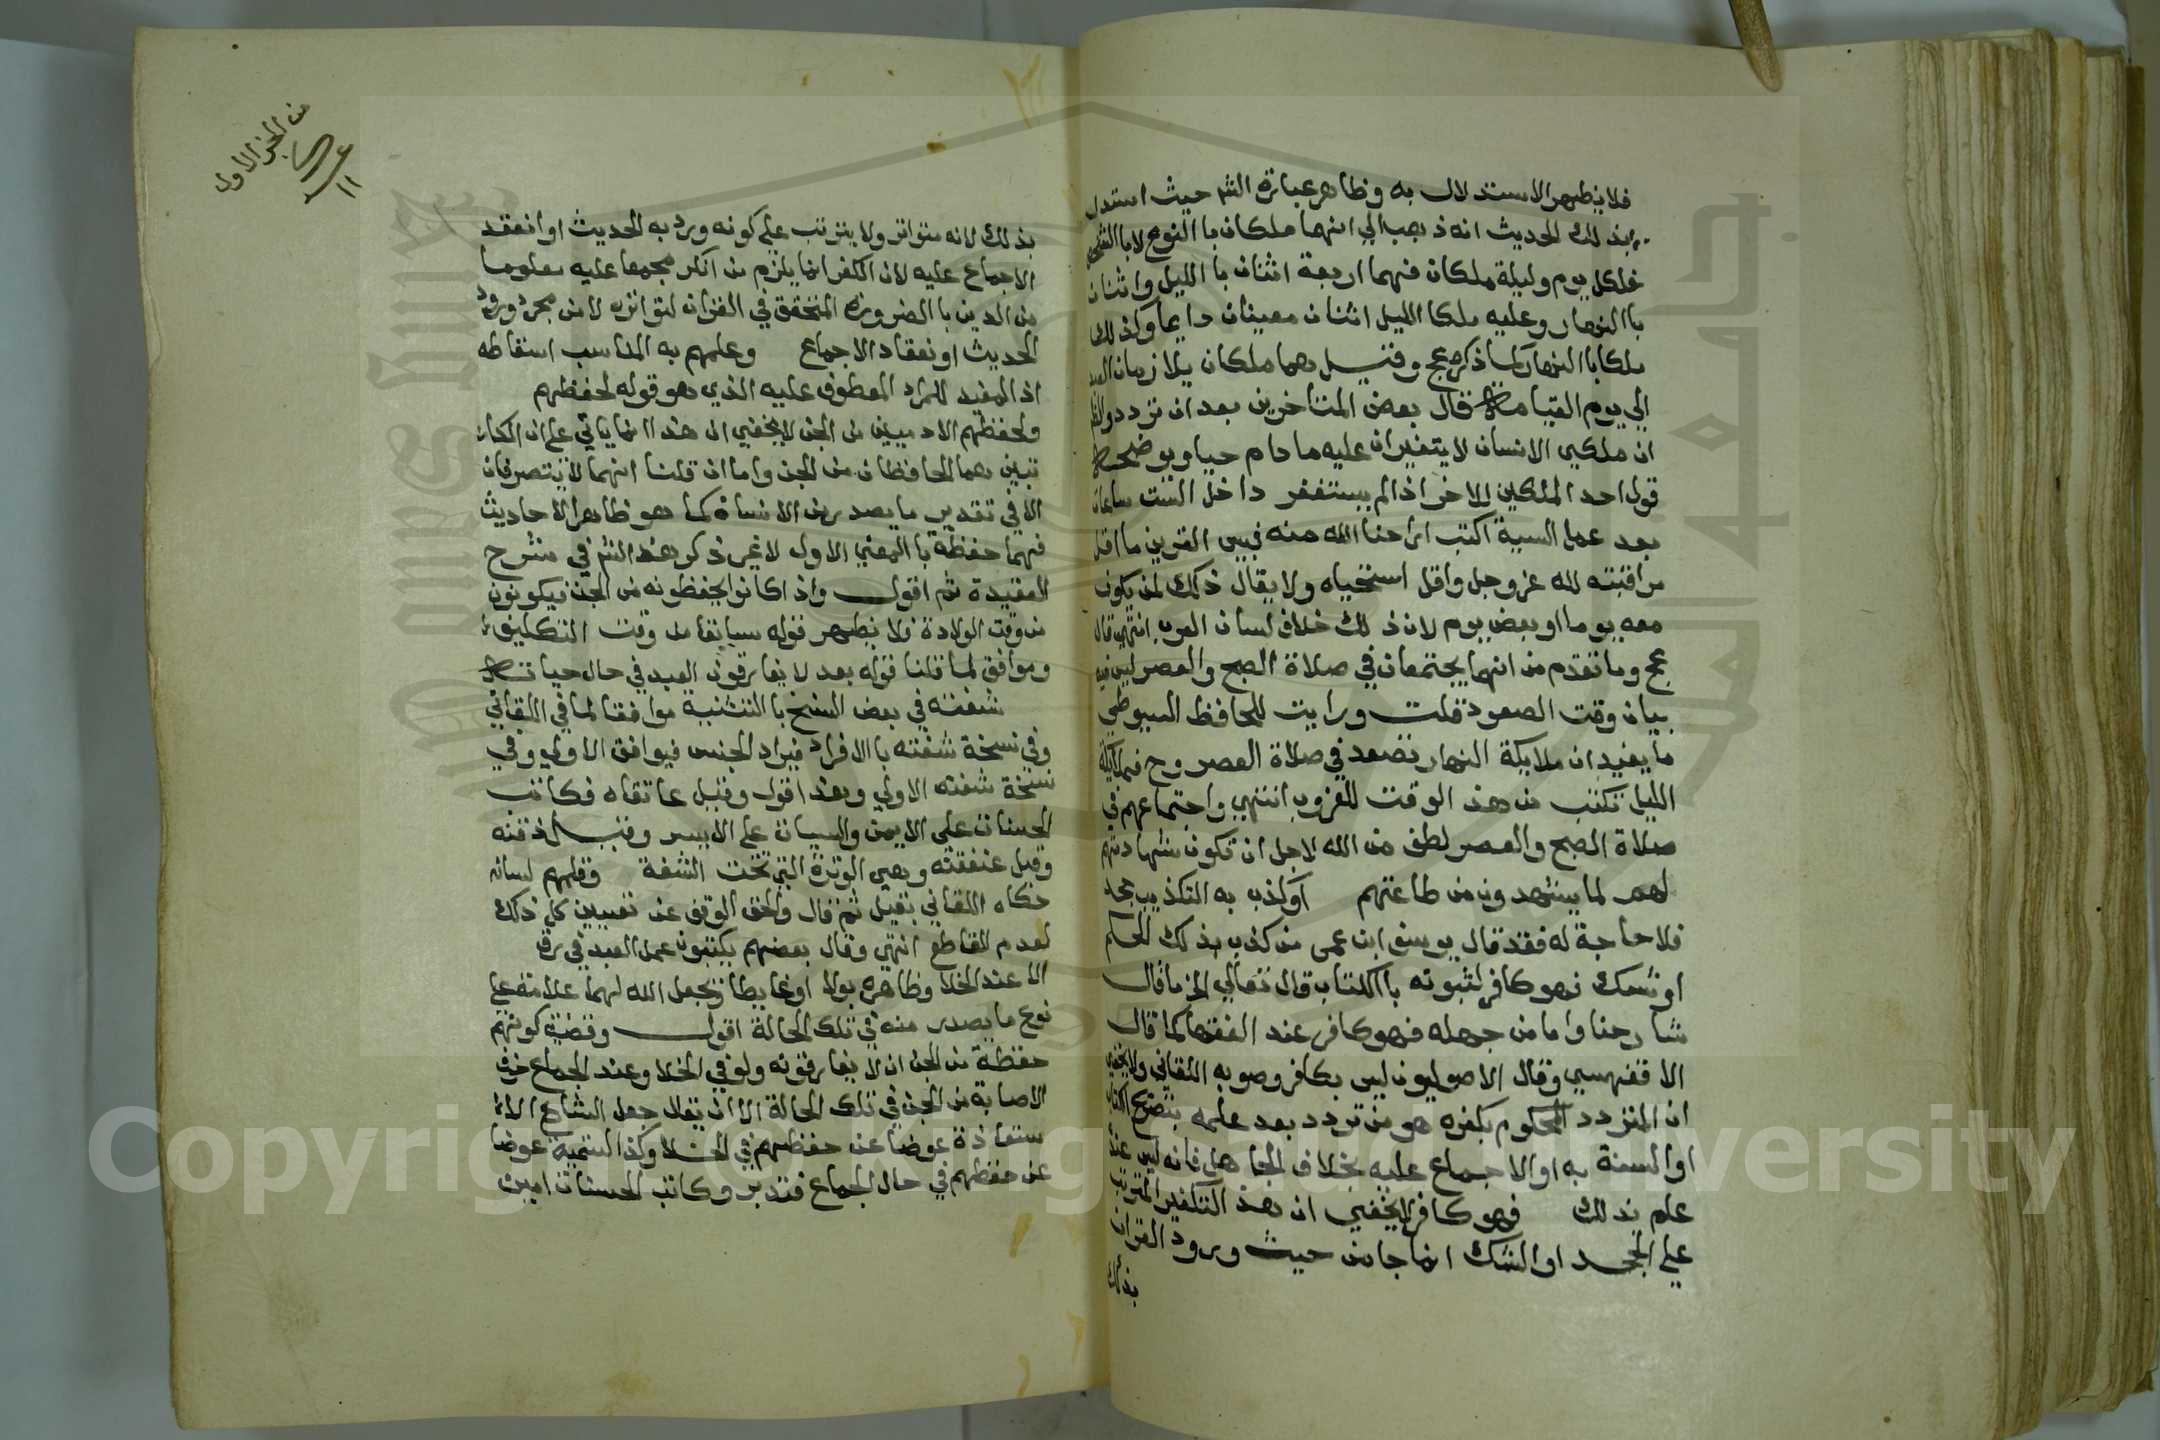 فلا يظهر الاستدلال به وظاهر عبارة الش حيث استدل
بذلك الحديث انه ذهب الي انهما ملكان با النوع لابا الشخص
فلكل يوم وليلة ملكان فهما اربعة اثنان با الليل واثنان
با النهار وعليه ملكا الليل اثنان معينان دايما وكذلك
ملكا با النهار كما ذكره عج وقيل هما ملكان يلازمان العبد
الي يوم القيامة قال بعض المتاخرين بعد ان تردد والظ
ان ملكي الانسان لا يتغيران عليه مادام حيا ويوضحه
قول احد الملكين للاخر اذا لم يستغفر داخل الست ساعات
بعد عمل السية اكتب اراحنا الله منه فبيس القرين ما اقل
مراقبته لله عز وجل واقل استحياه ولا يقال ذلك لمن يكون
معه يوما او بعض يوم لان ذلك خلاف لسان العرب انتهي قال
عج وما تقدم من انهما يجتمعان في صلاة الصبح والعصر ليس فيه
بيان وقت الصعود قلت ورايت للحافظ السيوطي
ما يفيد ان ملايكة النهار تصعد في صلاة العصر وح فملايكة
الليل تكتب من هذا الوقت للغروب انتهي واجتماعهم في
صلاة الصبح والعصر لطف من الله لاجل ان تكون شهادتهم
لهم لما يشهدون من طاعتهم او كذب به التكذيب جحد
فلا حاجة له فقد قال يوسف ابن عمر من كذب بذلك الحكم
او شك فهو كافر لثبوته با الكتاب قال تعالي الخ ما قال
شارحنا واما من جهله فهو كافر عند الفقها كما قال
الاقفهسي وقال الاصوليون ليس بكافر وصوبه اللقاني ولا يخفي
ان المتردد المحكوم بكفره هو من تردد بعد علمه بتصريح الكتاب
او السنة به او الاجماع عليه بخلاف الجاهل فانه ليس عنده
علم بذلك فهو كافر لا يخفي ان هذا التكفير المترتب
علي الجحد او الشك انما جا من حيث ورود القران
بذلك
من الجزء الاول
١١
بذلك لانه متواتر ولا يترتب علي كونه ورد به الحديث او انعقد
الاجماع عليه لان الكفر انما يلزم من انكر مجمعا عليه معلوما
من الدين با الضرورة المتحقق في القران لتواتره لا من مجرد ورود
الحديث او انعقاد الاجماع وعلمهم به المناسب اسقاطه
اذ المفيد للمراد المعطوف عليه الذي هو قوله لحفظهم
ولحفظهم الادميين من الجن لا يخفي ان هذا انما ياتي علي ان الكا
تبين هما الحافظان من الجن واما ان قلنا انهما لا يتصرفان
الا في تقدير ما يصدر من الانسان كما هو ظاهر الاحاديث
فهما حفظة با المعني الاول لا غير ذكر هذا الش في شرح
العقيدة ثم اقول واذا كانوا يحفظونه من الجن فيكونون
من وقت الولادة فلا يظهر قوله سابقا من وقت التكليف
وموافق لما قلنا قوله بعد لا يفارقون العبد في حال حياته
شفته في بعض النسخ با التثنية موافقا لما في اللقاني
وفي نسخة شفته با الافراد فيراد الجنس فيوافق الاولي وفي
نسخة شفته الاولي وبعد اقول وقيل عاتقاه فكاتب
الحسنات علي الايمن والسيات علي الايسر وقيل ذقنه
وقيل عنفقته وهي الوترة التي تحت الشفة وقلمهم لسانه
حكاه اللقاني بقيل ثم قال والحق الوقف عن تعيين كل ذلك
لعدم القاطع انتهي وقال بعضهم يكتبون عمل العبد في رق
الا عند الخلا وظاهره بولا او غايطا ويجعل الله لهما علامة علي
نوع ما يصدر منه في تلك الحالة اقول وقضية كونهم
حفظة من الجن ان لا يفارقونه ولو في الخلا وعند الجماع خوف
الاصابة من الجن في تلك الحالة الا ان يقال جعل الشارع الا
ستعاذة عوضا عن حفظهم في الخلا وكذا التسمية عوضا
عن حفظهم في حال الجماع فتدبر وكاتب الحسنات امين
Copyright © King Saud University
جامعة الملك سعود